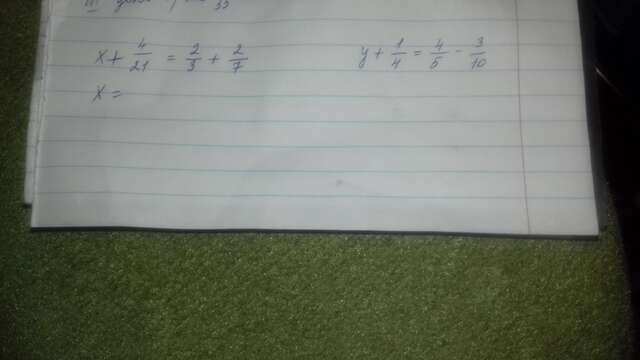 III
x + 4/21 = 2/3 + 2/7
y + 1/4 = 4/5 - 3/10
x =